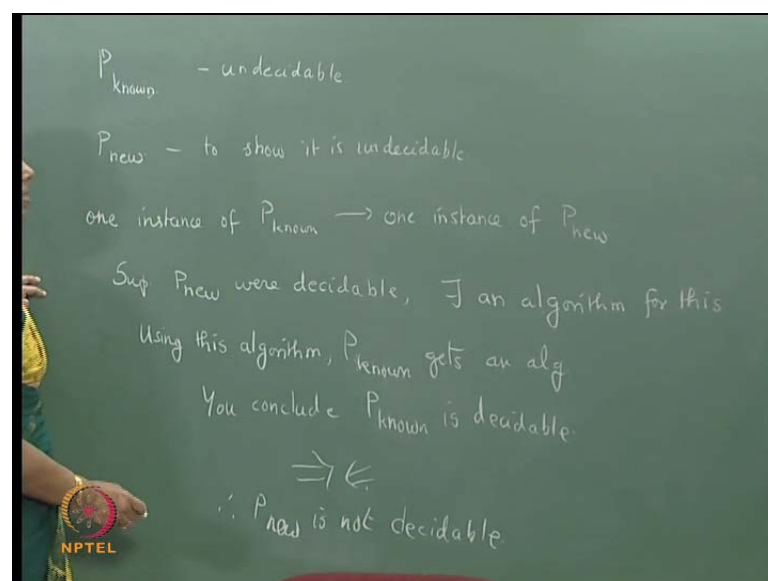 P known - undecidable
P new - to show it is undecidable
one instance of P known → one instance of P new
Sup P new were decidable, ∃ an algorithm for this
Using this algorithm, P known gets an alg
You conclude P known is decidable.
⇒⇐
∴ P new is not decidable
NPTEL